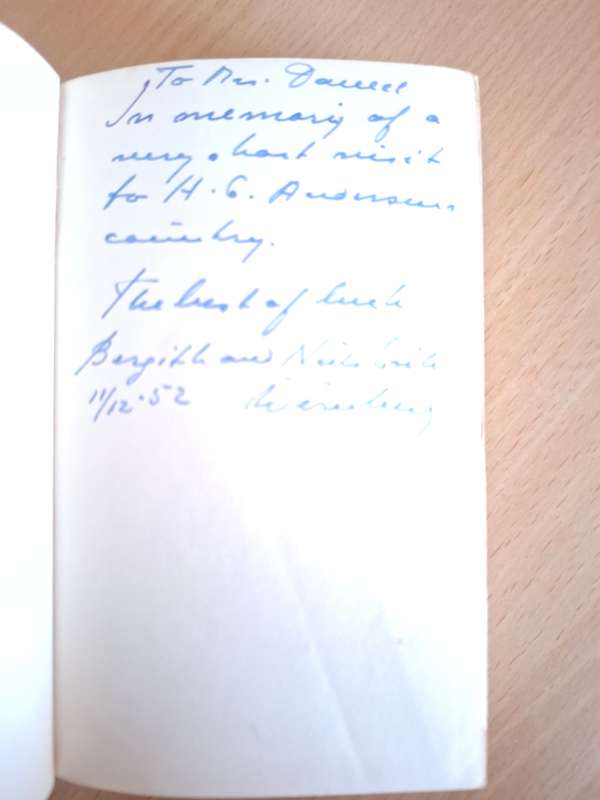 To Mr. Daniel
In memory of a
very short visit
to H.C. Andersens
country.
The best of luck
and Niels Erik
11/12-52